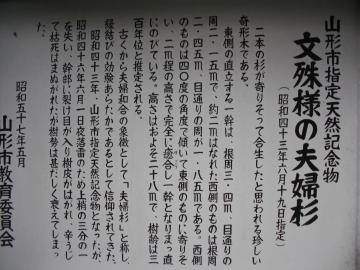 山形市指定天然記念物
文殊様の夫婦杉
(昭和四十三年六月十九日指定)
二本の杉が寄りそって合生したと思われる珍しい
奇形木である。
東側の直立する一幹は、根周三・四m、目通りの
周二・一五mで、約二mはなれた西側のものは根周
二・四五m、目通りの周が一・八五mである。西側
のものは四〇度の角度で傾いて東側のものに寄りそ
い、二m程の高さで完全に癒合し一幹となりまっ直
にのびている。高さはおよそ二十八mで、樹齢は三
百年位と推定される。
古くから夫婦和合の象徴として「夫婦杉」と称し
縁結びの効験あらたかであるとして信仰されてきた。
昭和四十三年、山形市指定天然記念物となったが、
昭和四十六年六月一日夜落雷のため上梢の三分の一
を失い、幹部に裂け目が入り樹皮がはがれ、辛うじ
て枯死はまぬがれたが樹勢は甚だしく衰えてしまっ
昭和五十七年五月
山形市教育委員会